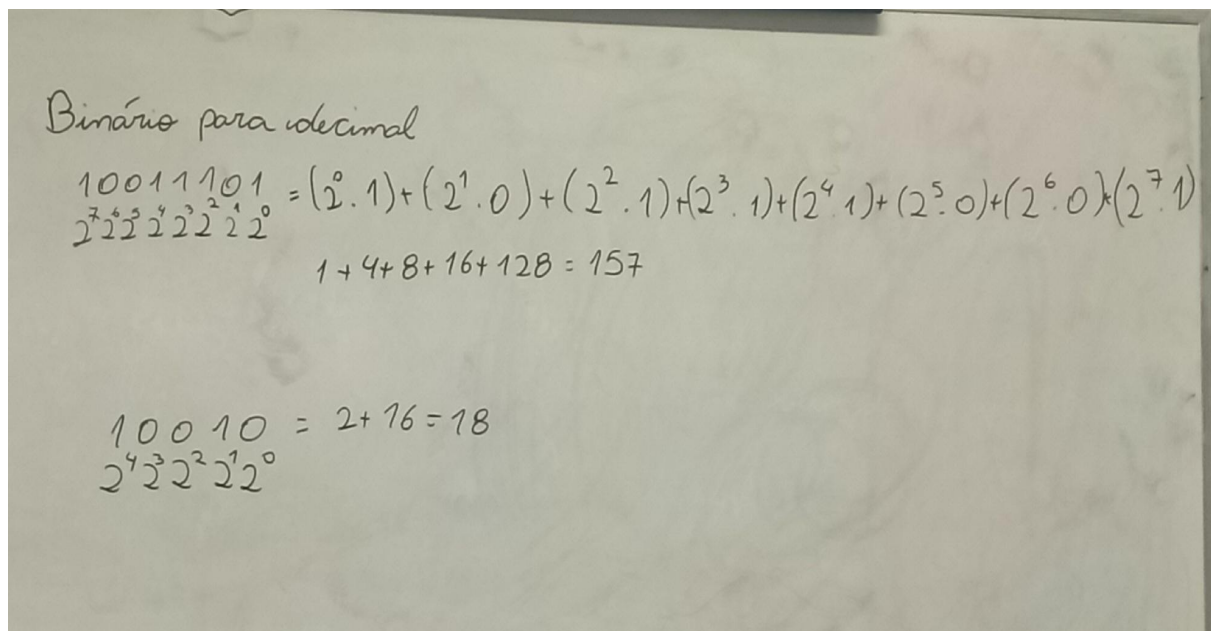 Binário para decimal
10011101 = (2⁰.1)+(2¹.0)+(2².1)+(2³.1)+(2⁴.1)+(2⁵.0)+(2⁶.0)+(2⁷.1)
2⁷2⁶2⁵2⁴2³2²2¹2⁰
1+4+8+16+128=157
10010 = 2+16=18
2⁴2³2²2¹2⁰